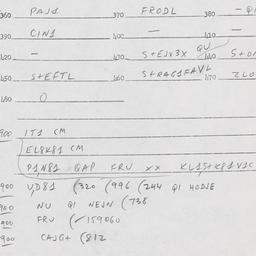 360 PAJ1 370 FRODL 380 - Q1
390 CIN1 400 - 410 -
420 - 430 S+EJV3X QU 440 S+O
450 S+EFTL 460 S+RAG1FAVL 470 ZLO
480 0
900 IT1 CM
EL8K81 CM
P1N81 QAP FRU XX KL1S+K81V1C
900 V,D81 (320 (996 (244 Q1 HODJE
900 NU Q1 NEJN (738
900 FRU (159060
900 CAJG+ (812